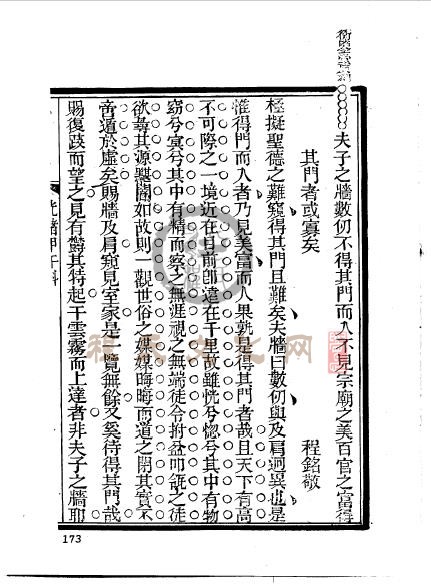 夫子之牆數仞不得其門而入不見宗廟之美百官之富得
其門者或寡矣
程銘敬
極擬聖德之難窺得其門且難矣夫牆曰數仞與及肩迥異也是
惟得門而入者乃見美富而入果孰是得其門者哉且天下有高
不可際之一境近在目前卽遠在千里故雖恍兮惚兮其中有物
窈兮冥兮其中有精而察之無涯視之無端徒令拊盆叩瓴之徒
欲尋其源礙闔如故則一觀世俗之媒媒晦晦而道之閉其實不
啻道於虛矣賜牆及肩窺見室家是一覽無餘又奚待得其門哉
賜復跂而望之見有鬱其特起干雲霧而上達者非夫子之牆耶
光緒甲午科
173